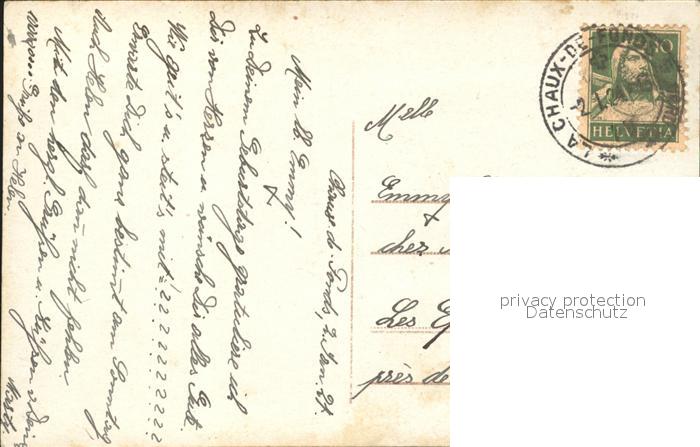 Chaux d. Fonds, 2. Jan. 21.
Mein lb. Emmy!
Zu Deinem Geburtstage gratuliere ich
Dir von Herzen u. wünsche Dir alles Gute.
Wie geit's u. steit's mit
Erwarte Dich ganz bestimmt am Sonntag
Auch Helen darf nicht fehlen
Mit den herzl. Grüßen u. Küssen v. Dein
Grüße an Helen.
Melle
Emmy
chez
Les
près de
LA CHAUX-DE-FONDS
10
HELVETIA
privacy protection
Datenschutz